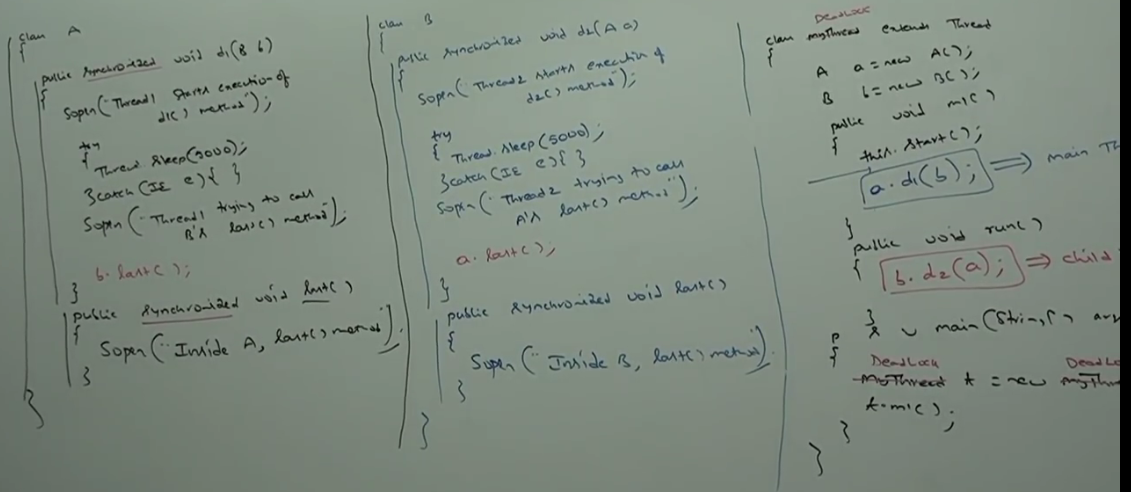 class A
{
public synchronized void d1(B b)
{
Sopln("Thread1 starts execution of
d1() method");
try
{
Thread.sleep(5000);
}catch(IE e){ }
Sopln("Thread1 trying to call
B's last() method");
b.last();
}
public synchronized void last()
{
Sopln("Inside A, last() method");
}
}
class B
{
public synchronized void d2(A a)
{
Sopln("Thread2 starts execution of
d2() method");
try
{ Thread.sleep(5000);
}catch(IE e){ }
Sopln("Thread2 trying to call
A's last() method");
a.last();
}
public synchronized void last()
{
Sopln("Inside B, last() method");
}
}
DeadLock
class myThread extends Thread
{
A a = new A();
B b = new B();
public void m1()
{
this.start();
a.d1(b); => main Th
}
public void run()
{
b.d2(a); => child
}
p s v main(String[] arg
{
DeadLock DeadLo
MyThread t = new myThr
t.m1();
}
}